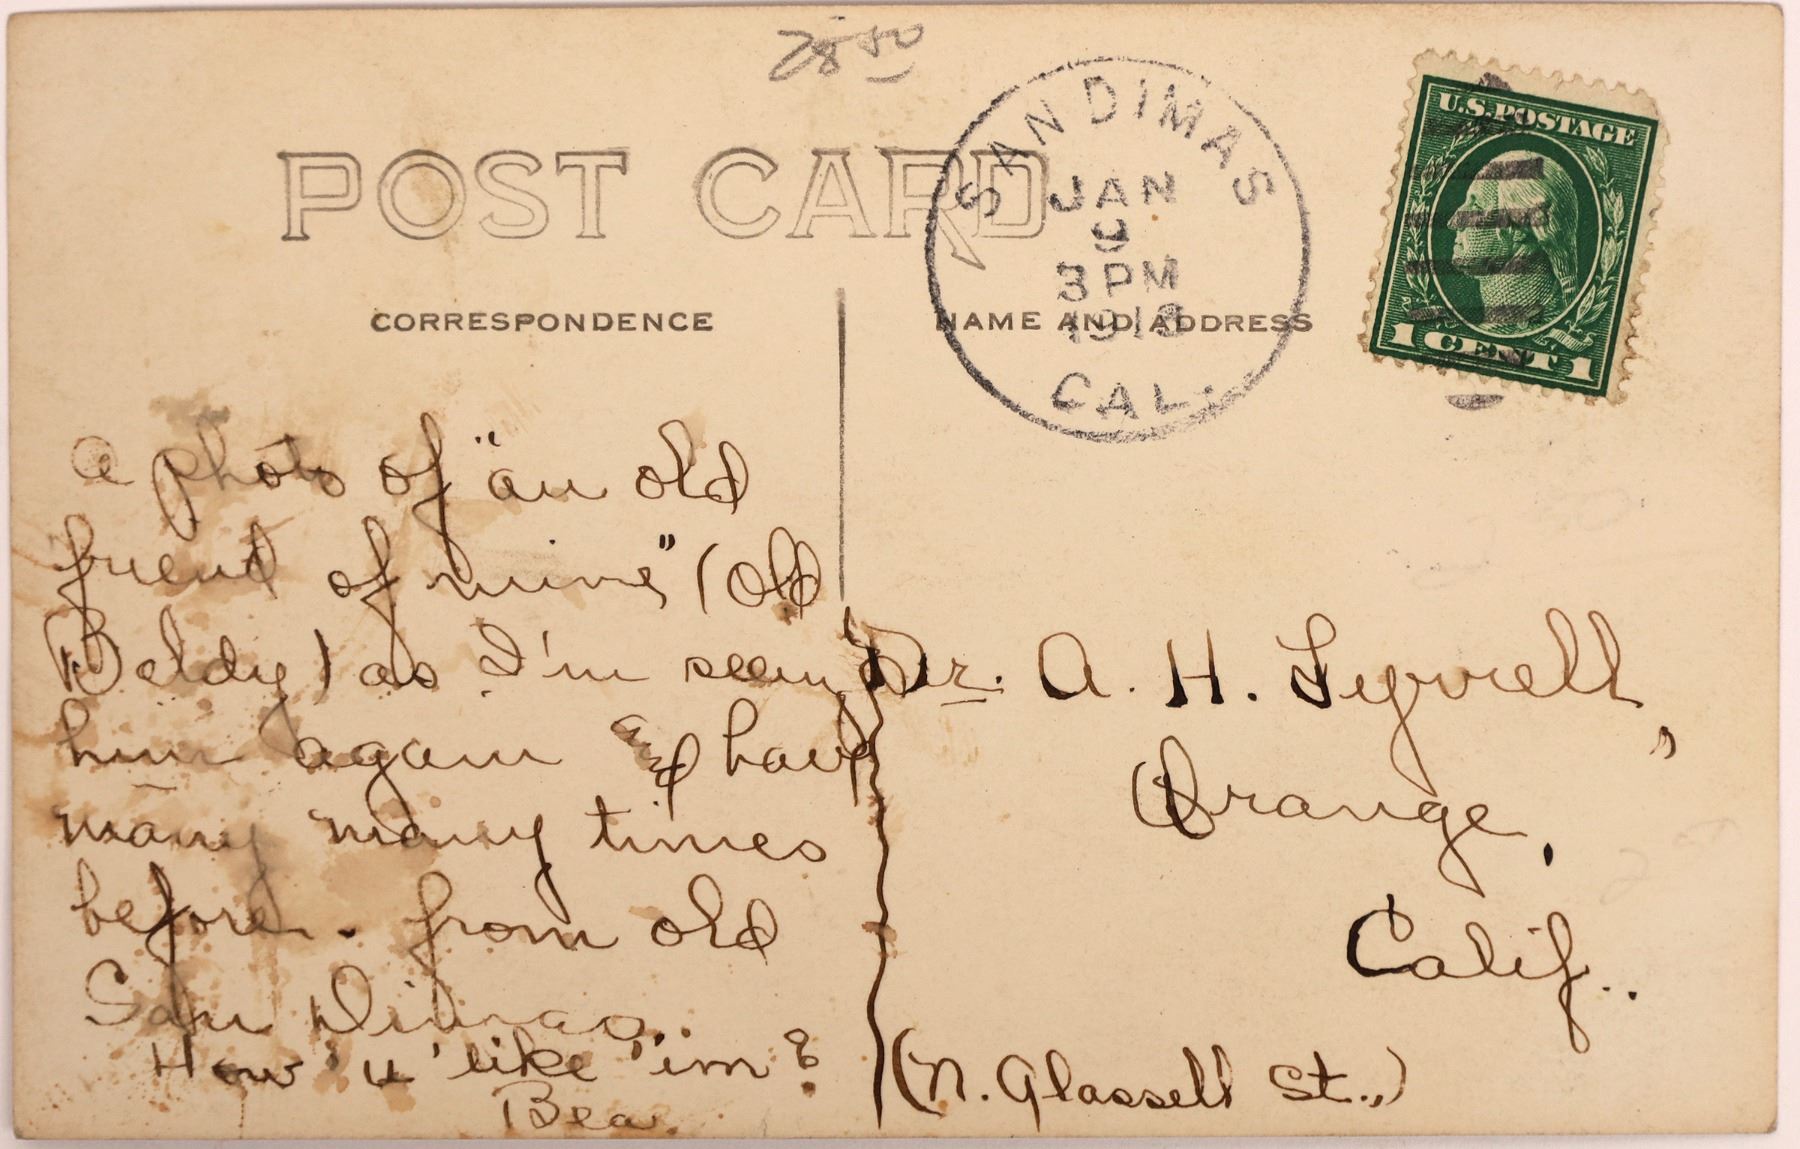 2850
POST CARD
CORRESPONDENCE
NAME AND ADDRESS
SAN DIMAS
JAN
9
3 PM
1913
CAL.
U.S. POSTAGE
1 CENT 1
a photo of "an old
friend of mine" (Old
Baldy) as I'm seeing
him again and have
many many times
before. from old
San Dimas.
How 'd 'u' like 'im?
Bea.
Dr. A. H. Tyrrell,
Orange,
Calif..
(N. Glassell St.,)